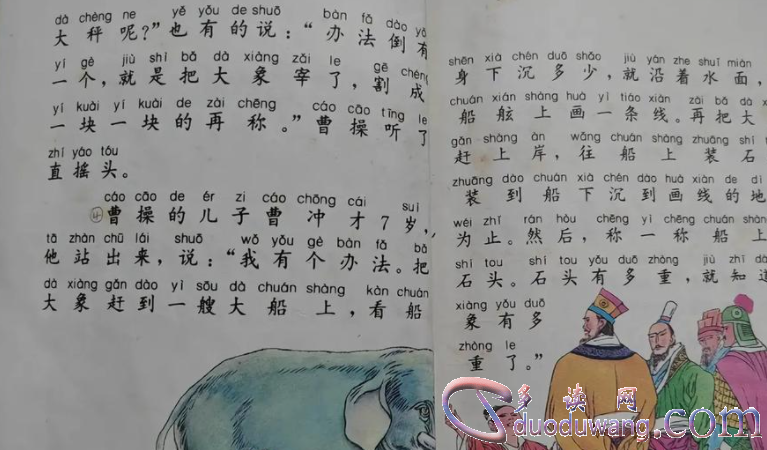 dà chèng ne yě yǒu de shuō bàn fǎ dào yǒ
大秤呢?”也有的说:“办法倒有
yí gè jiù shì bǎ dà xiàng zǎi le gē chéng
一个,就是把大象宰了,割成
yí kuài yí kuài de zài chēng cáo cāo tīng le
一块一块的再称。”曹操听了
zhí yáo tóu
直摇头。
cáo cāo de ér zi cáo chōng cái suì
④曹操的儿子曹冲才7岁,
tā zhàn chū lái shuō wǒ yǒu gè bàn fǎ bǎ
他站出来,说:“我有个办法。把
dà xiàng gǎn dào yì sōu dà chuán shàng kàn chuán
大象赶到一艘大船上,看船
shēn xià chén duō shǎo jiù yán zhe shuǐ miàn
身下沉多少,就沿着水面,
chuán xián shàng huà yì tiáo xiàn zài bǎ dà x
船舷上画一条线。再把大
gǎn shàng àn wǎng chuán shàng zhuāng shí t
赶上岸,往船上装石
zhuāng dào chuán xià chén dào huà xiàn de dì
装到船下沉到画线的地
wéi zhǐ rán hòu chēng yì chēng chuán shàng
为止。然后,称一称船上
shí tou shí tou yǒu duō zhòng jiù zhī dà
石头。石头有多重,就知道
xiàng yǒu duō
象有多
zhòng le
重了。”
多读网
duoduwang.com